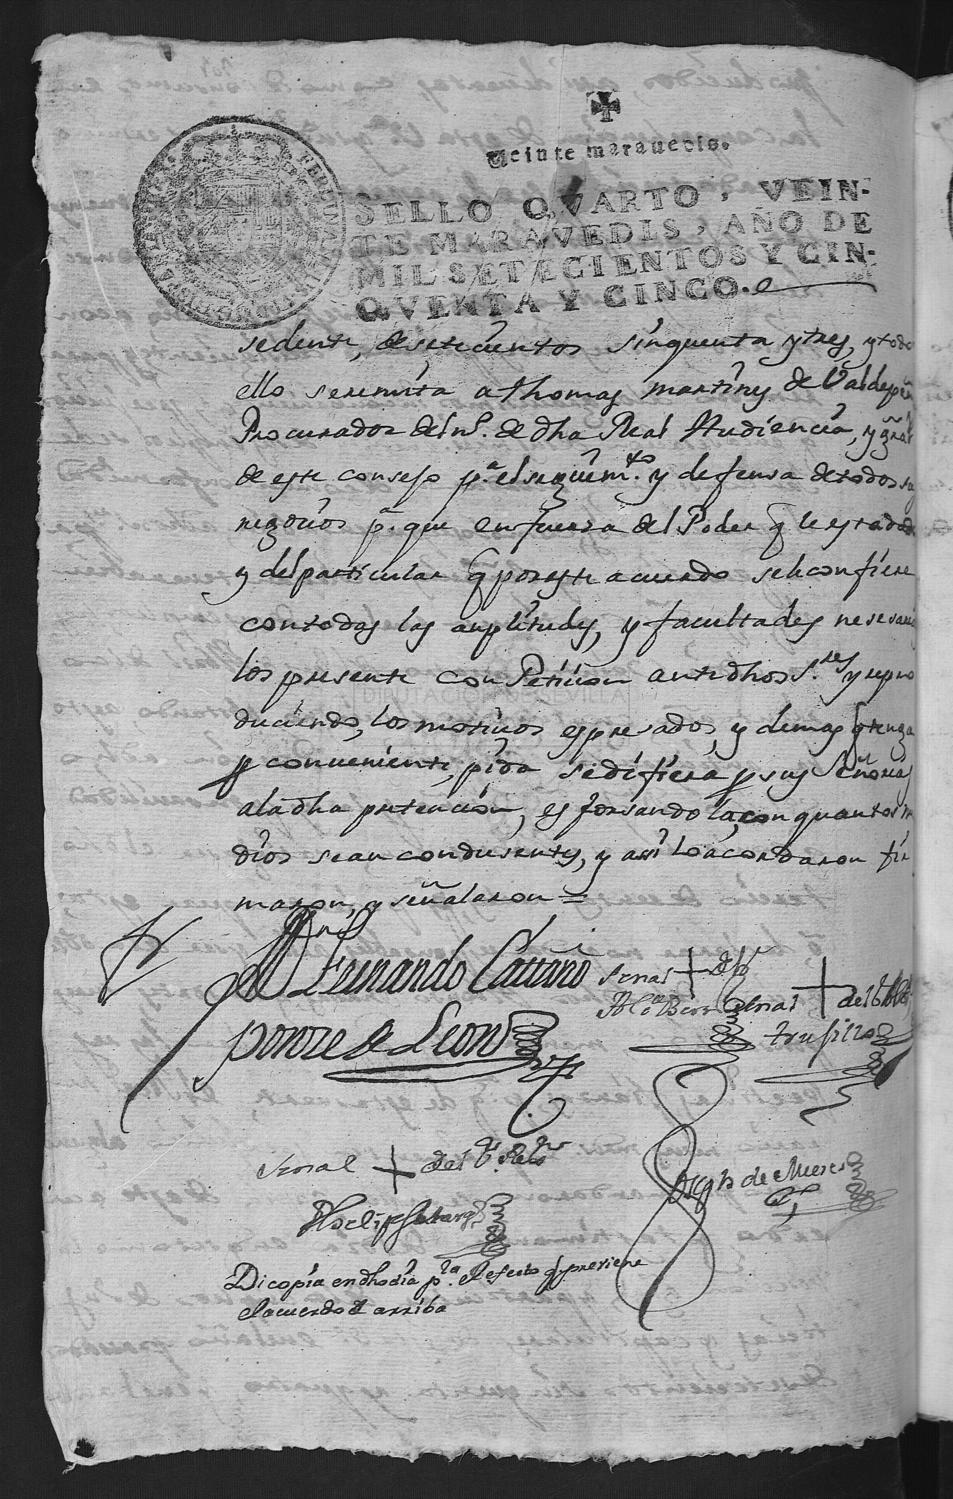 Veinte maravedis.
SELLO QVARTO, VEIN-
TE MARAVEDIS, AÑO DE
MIL SETECIENTOS Y CIN-
QVENTA Y CINCO.
sedente, de setecientos sinquenta y tres, y todo
ello se remita a thomas martines de Valdepeñ
Procurador del nº. de dha Real Audiencia, y gral
de este consejo pª. el seguimto. y defensa de todos su
negocios pª. que en fuerza del Poder q le esta dado
y del particular q por este acuerdo se le confiere
con todas las amplitudes, y facultades nesesari
los presente con Peticion ante dhos Sres. y repro
duciendo los motivos espresados, y demas q tenga
p conveniente, pida se difiera p sus Señorias
a la dha pretencion, esforsando la, con quantos me
dios sean condusentes, y assi lo acordaron fir
maron, y señalaron =
Dn Fernando Cattano
ponze de Leon
señal + del
señal + de
trusillo
señal + del Rexor
Phelipe
Joseph de
Di copia en dho dia pª. el efecto q previene
el acuerdo de arriba
DIPUTACION SEVILLA